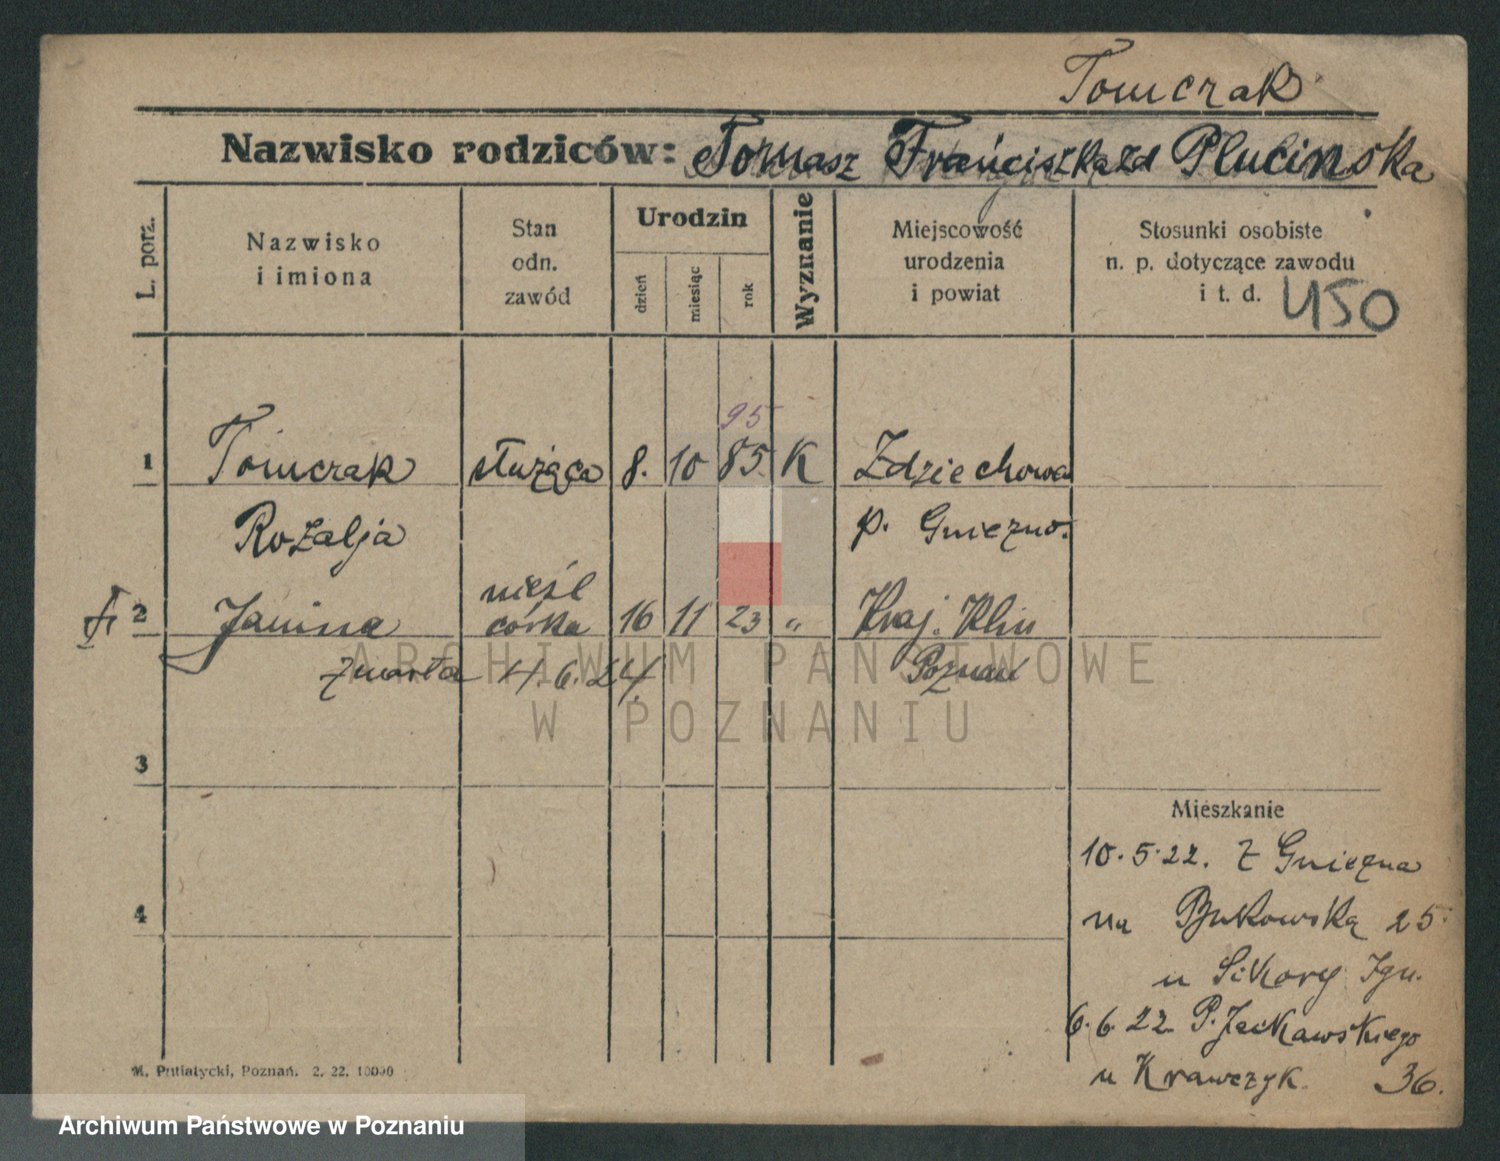 Tomczak
Nazwisko rodziców: Tomasz Franciszka zd Plucinska
L. porz.
Nazwisko i imiona
Stan odn. zawód
Urodzin
dzień
miesiąc
rok
Wyznanie
Miejscowość urodzenia i powiat
Stosunki osobiste n. p. dotyczące zawodu i t. d. 450
95
1 Tomczak służąca 8. 10 85. K Zdziechowa
Rozalja p. Gniezno.
nieśl
2 Janina córka 16 11 23 " Kraj. Klin
zmarła 4.6.24. Poznań
ARCHIWUM PAŃSTWOWE
W POZNANIU
3
Mieszkanie
10.5.22. z Gniezna
4
na Bukowską 25
u Sikory Ign.
6.6.22 P. Jackowskiego
u Krawczyk 36.
M. Putiatycki, Poznań. 2. 22. 10000
Archiwum Państwowe w Poznaniu